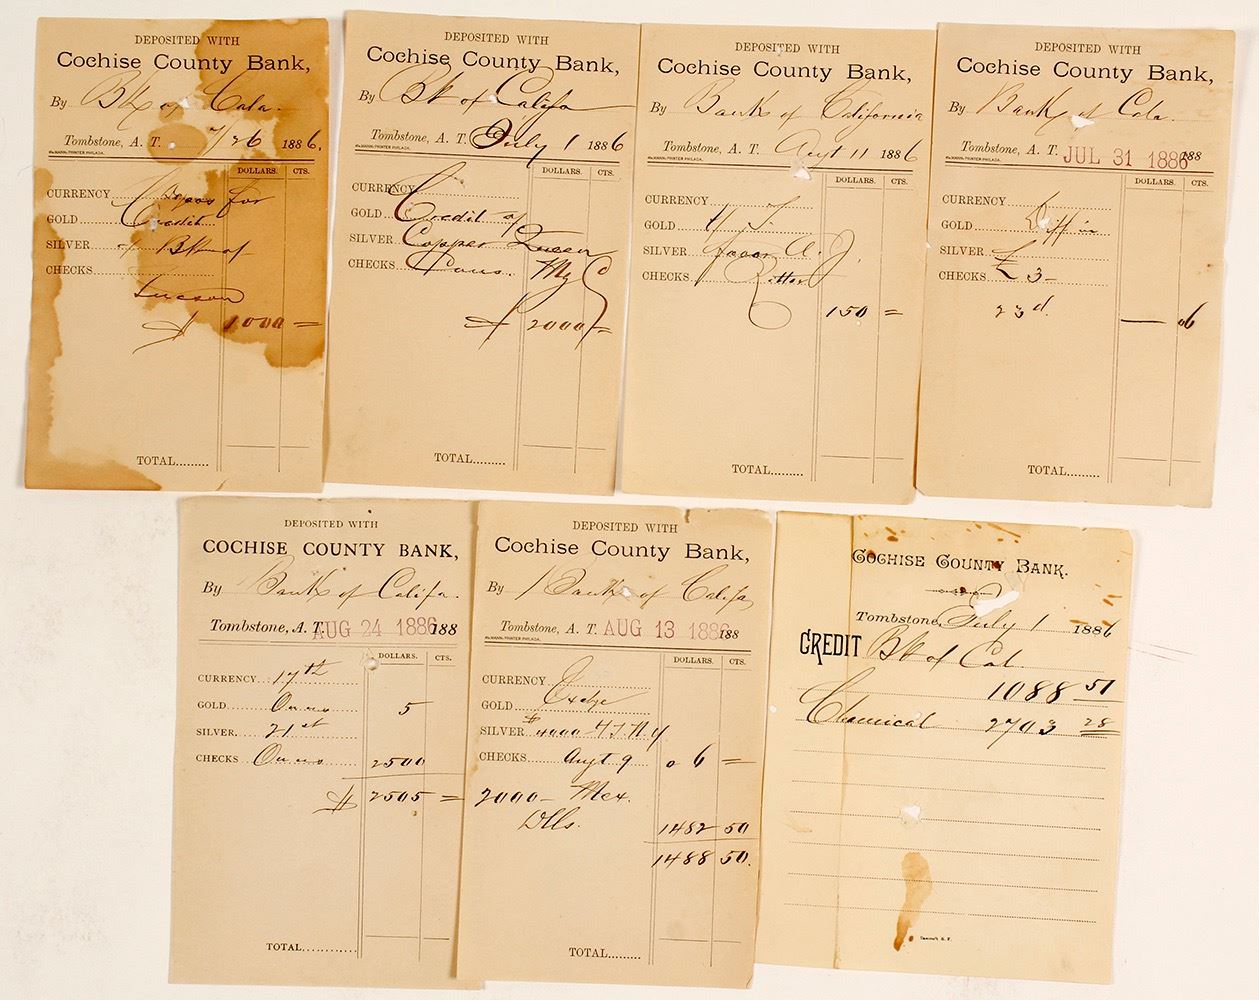 DEPOSITED WITH
Cochise County Bank,
By Bk of Cala.
Tombstone, A. T. 7/26 1886.
MANN PRINTER PHILADA.
DOLLARS. CTS.
CURRENCY for
GOLD Credit
SILVER of Bk of
CHECKS
Tucson
$ 1000 =
TOTAL.........
DEPOSITED WITH
Cochise County Bank,
By Bk of Califa
Tombstone, A. T. July 1 1886
MANN PRINTER PHILADA.
DOLLARS. CTS.
CURRENCY
GOLD Credit of
SILVER Copper Queen
CHECKS Cons. Mg Co
$ 2000 =
TOTAL.........
DEPOSITED WITH
Cochise County Bank,
By Bank of California
Tombstone, A. T. Augt 11 1886
MANN PRINTER PHILADA.
DOLLARS. CTS.
CURRENCY
GOLD
SILVER favor A. J.
CHECKS Ritter
150 =
TOTAL.........
DEPOSITED WITH
Cochise County Bank,
By Bank of Cala.
Tombstone, A. T. JUL 31 1886 188
MANN PRINTER PHILADA.
DOLLARS. CTS.
CURRENCY
GOLD Diff in
SILVER £
CHECKS 3-
23d. — 06
TOTAL.........
DEPOSITED WITH
COCHISE COUNTY BANK,
By Bank of Califa.
Tombstone, A. T. AUG 24 1886 188
DOLLARS. CTS.
CURRENCY 17th
GOLD Ours 5
SILVER 21st
CHECKS Ours 2500
$ 2505 =
TOTAL............
DEPOSITED WITH
Cochise County Bank,
By Bank of Califa
Tombstone, A. T. AUG 13 1886 188
MANN PRINTER PHILADA.
DOLLARS. CTS.
CURRENCY
GOLD Exchge
SILVER $4000
CHECKS Augt 9 06 =
2000 - Mex.
Dlls. 1482 50
1488 50.
TOTAL.........
COCHISE COUNTY BANK.
Tombstone, July 1 1886
CREDIT Bk of Cal.
1088 51
Chemical 2703 28